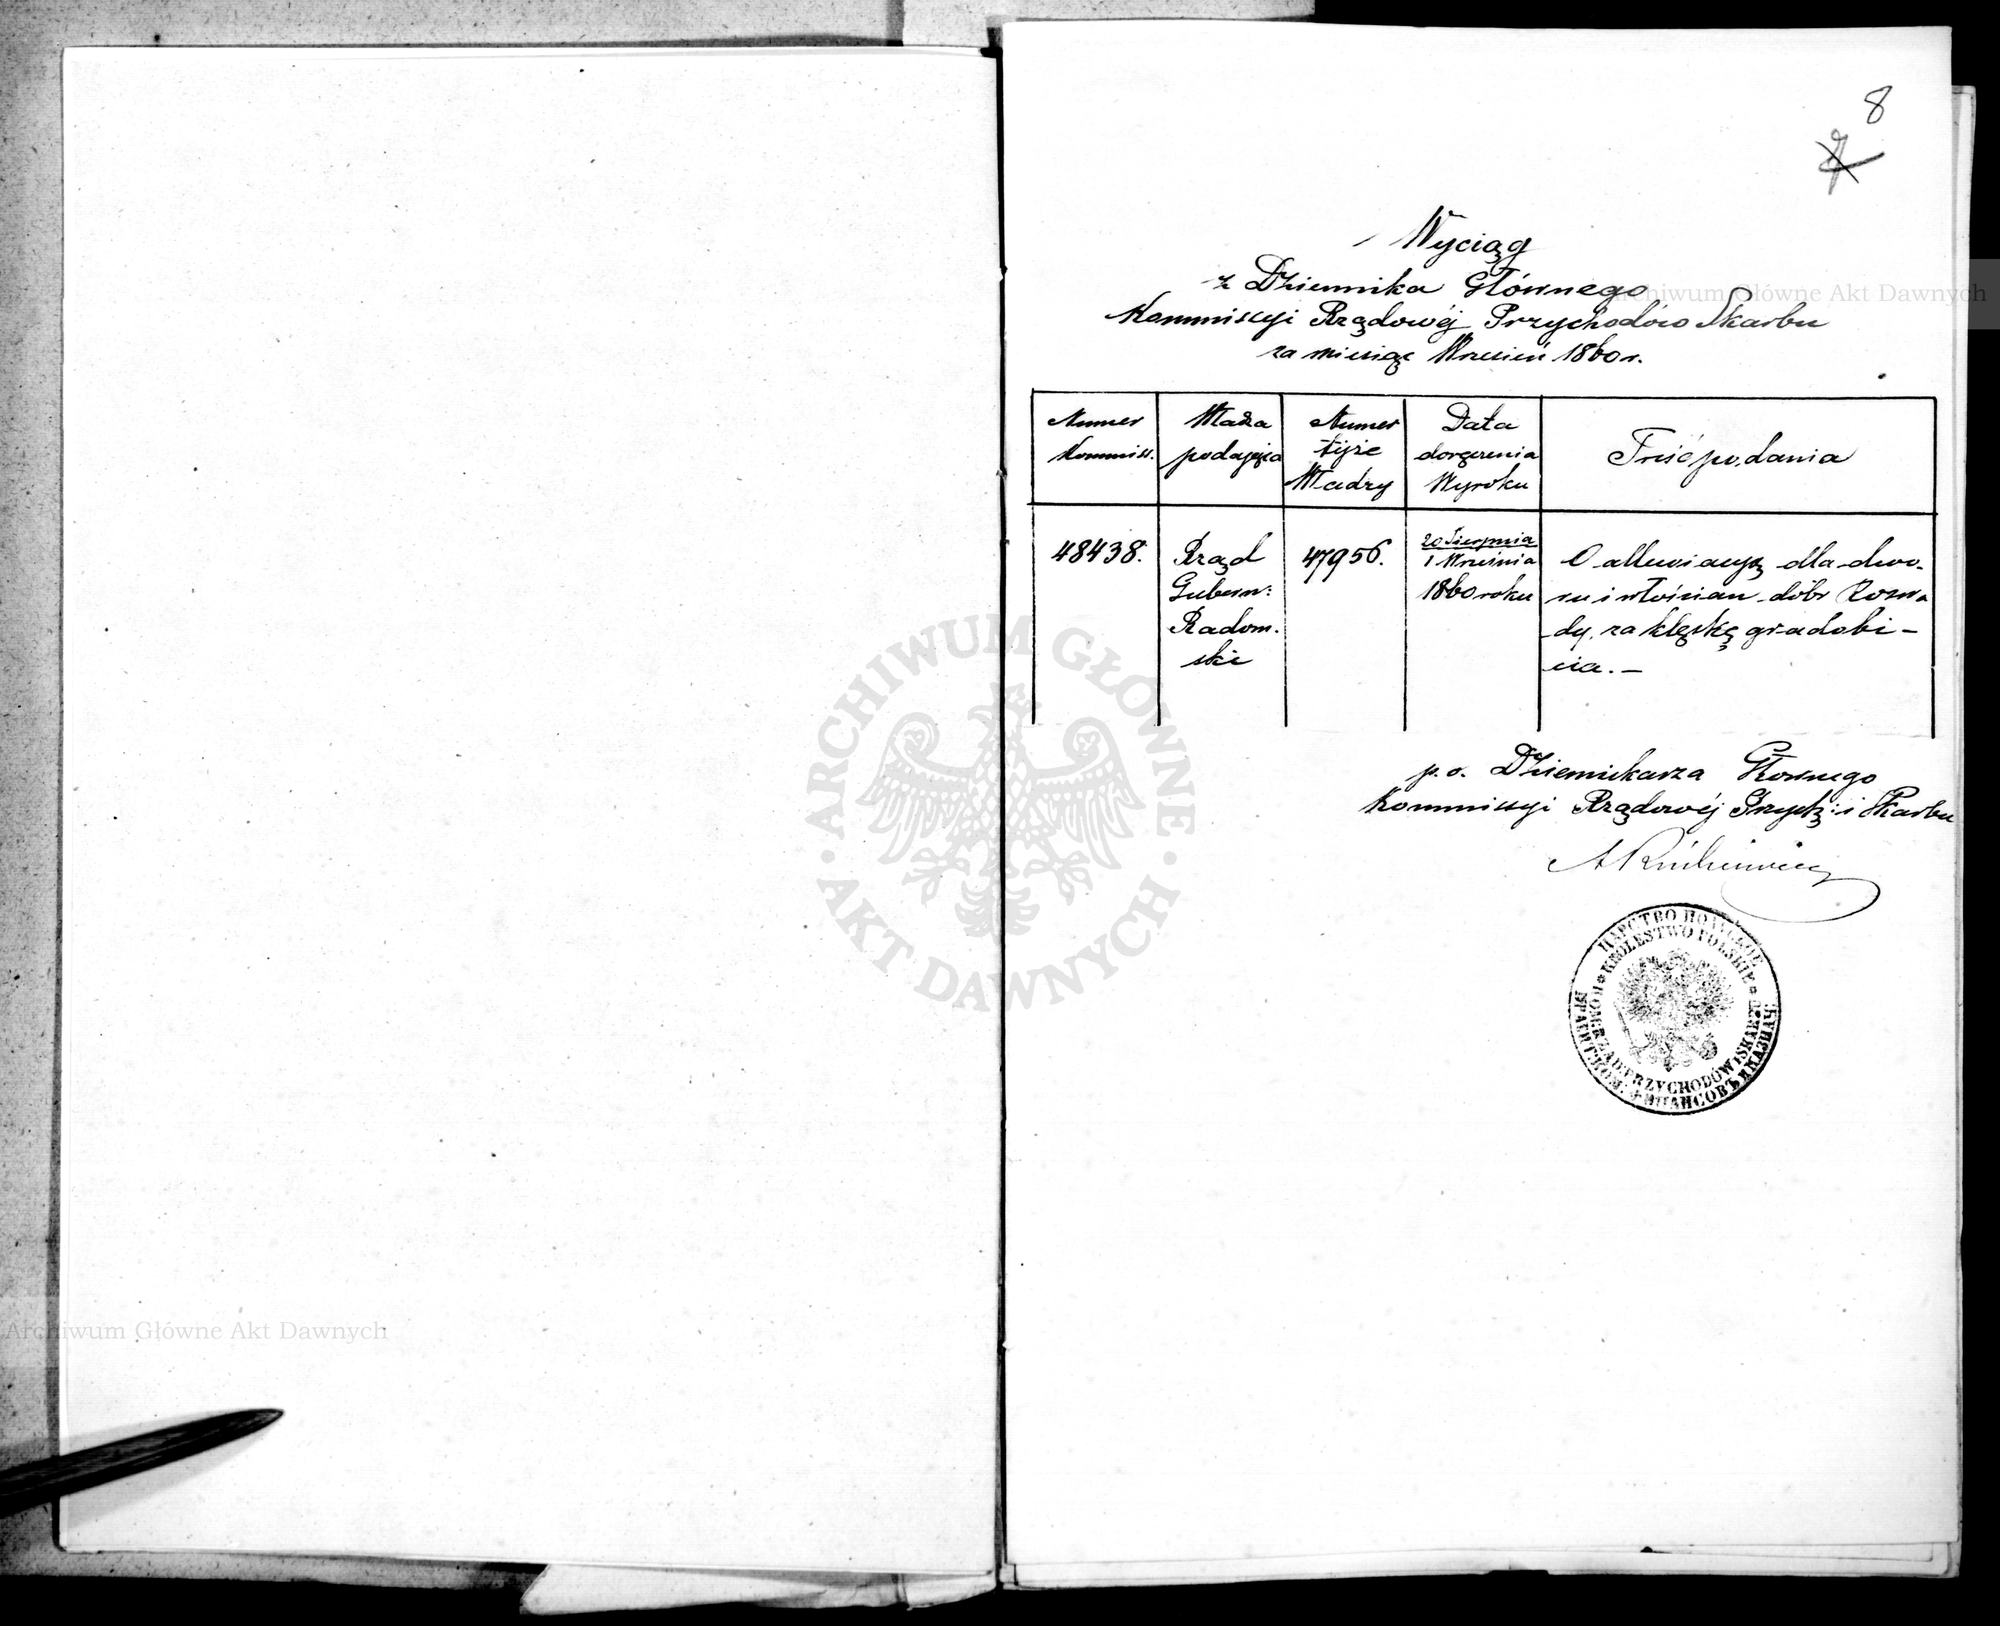 8
7
Wyciąg
z Dziennika Głównego
Kommissyi Rządowéj Przychodów Skarbu
za miesiąc Wrzesień 1860 r.
Numer Kommiss.
Władza podająca
Numer tejże Władzy
Data doręczenia Wyroku
Treść podania
48438.
Rząd
Gubern:
Radom.
ski
47956.
20 Sierpnia
1 Września
1860 roku
O allewiacyą dla dwo-
ru i włościan dóbr Rozwa
dy, za klęskę gradobi-
cia. —
p. o. Dziennikarza Głównego
Kommissyi Rządowéj Przych: i Skarbu
ЦАРСТВО ПОЛЬСКОЕ
KRÓLESTWO POLSKIE
KOM: RZĄD: PRZYCHODÓW I SKARBU
ПРАВИТ. КОМ. ФИНАНСОВЪ И КАЗНАЧ.
Archiwum Główne Akt Dawnych
ARCHIWUM GŁÓWNE AKT DAWNYCH
Archiwum Główne Akt Dawnych